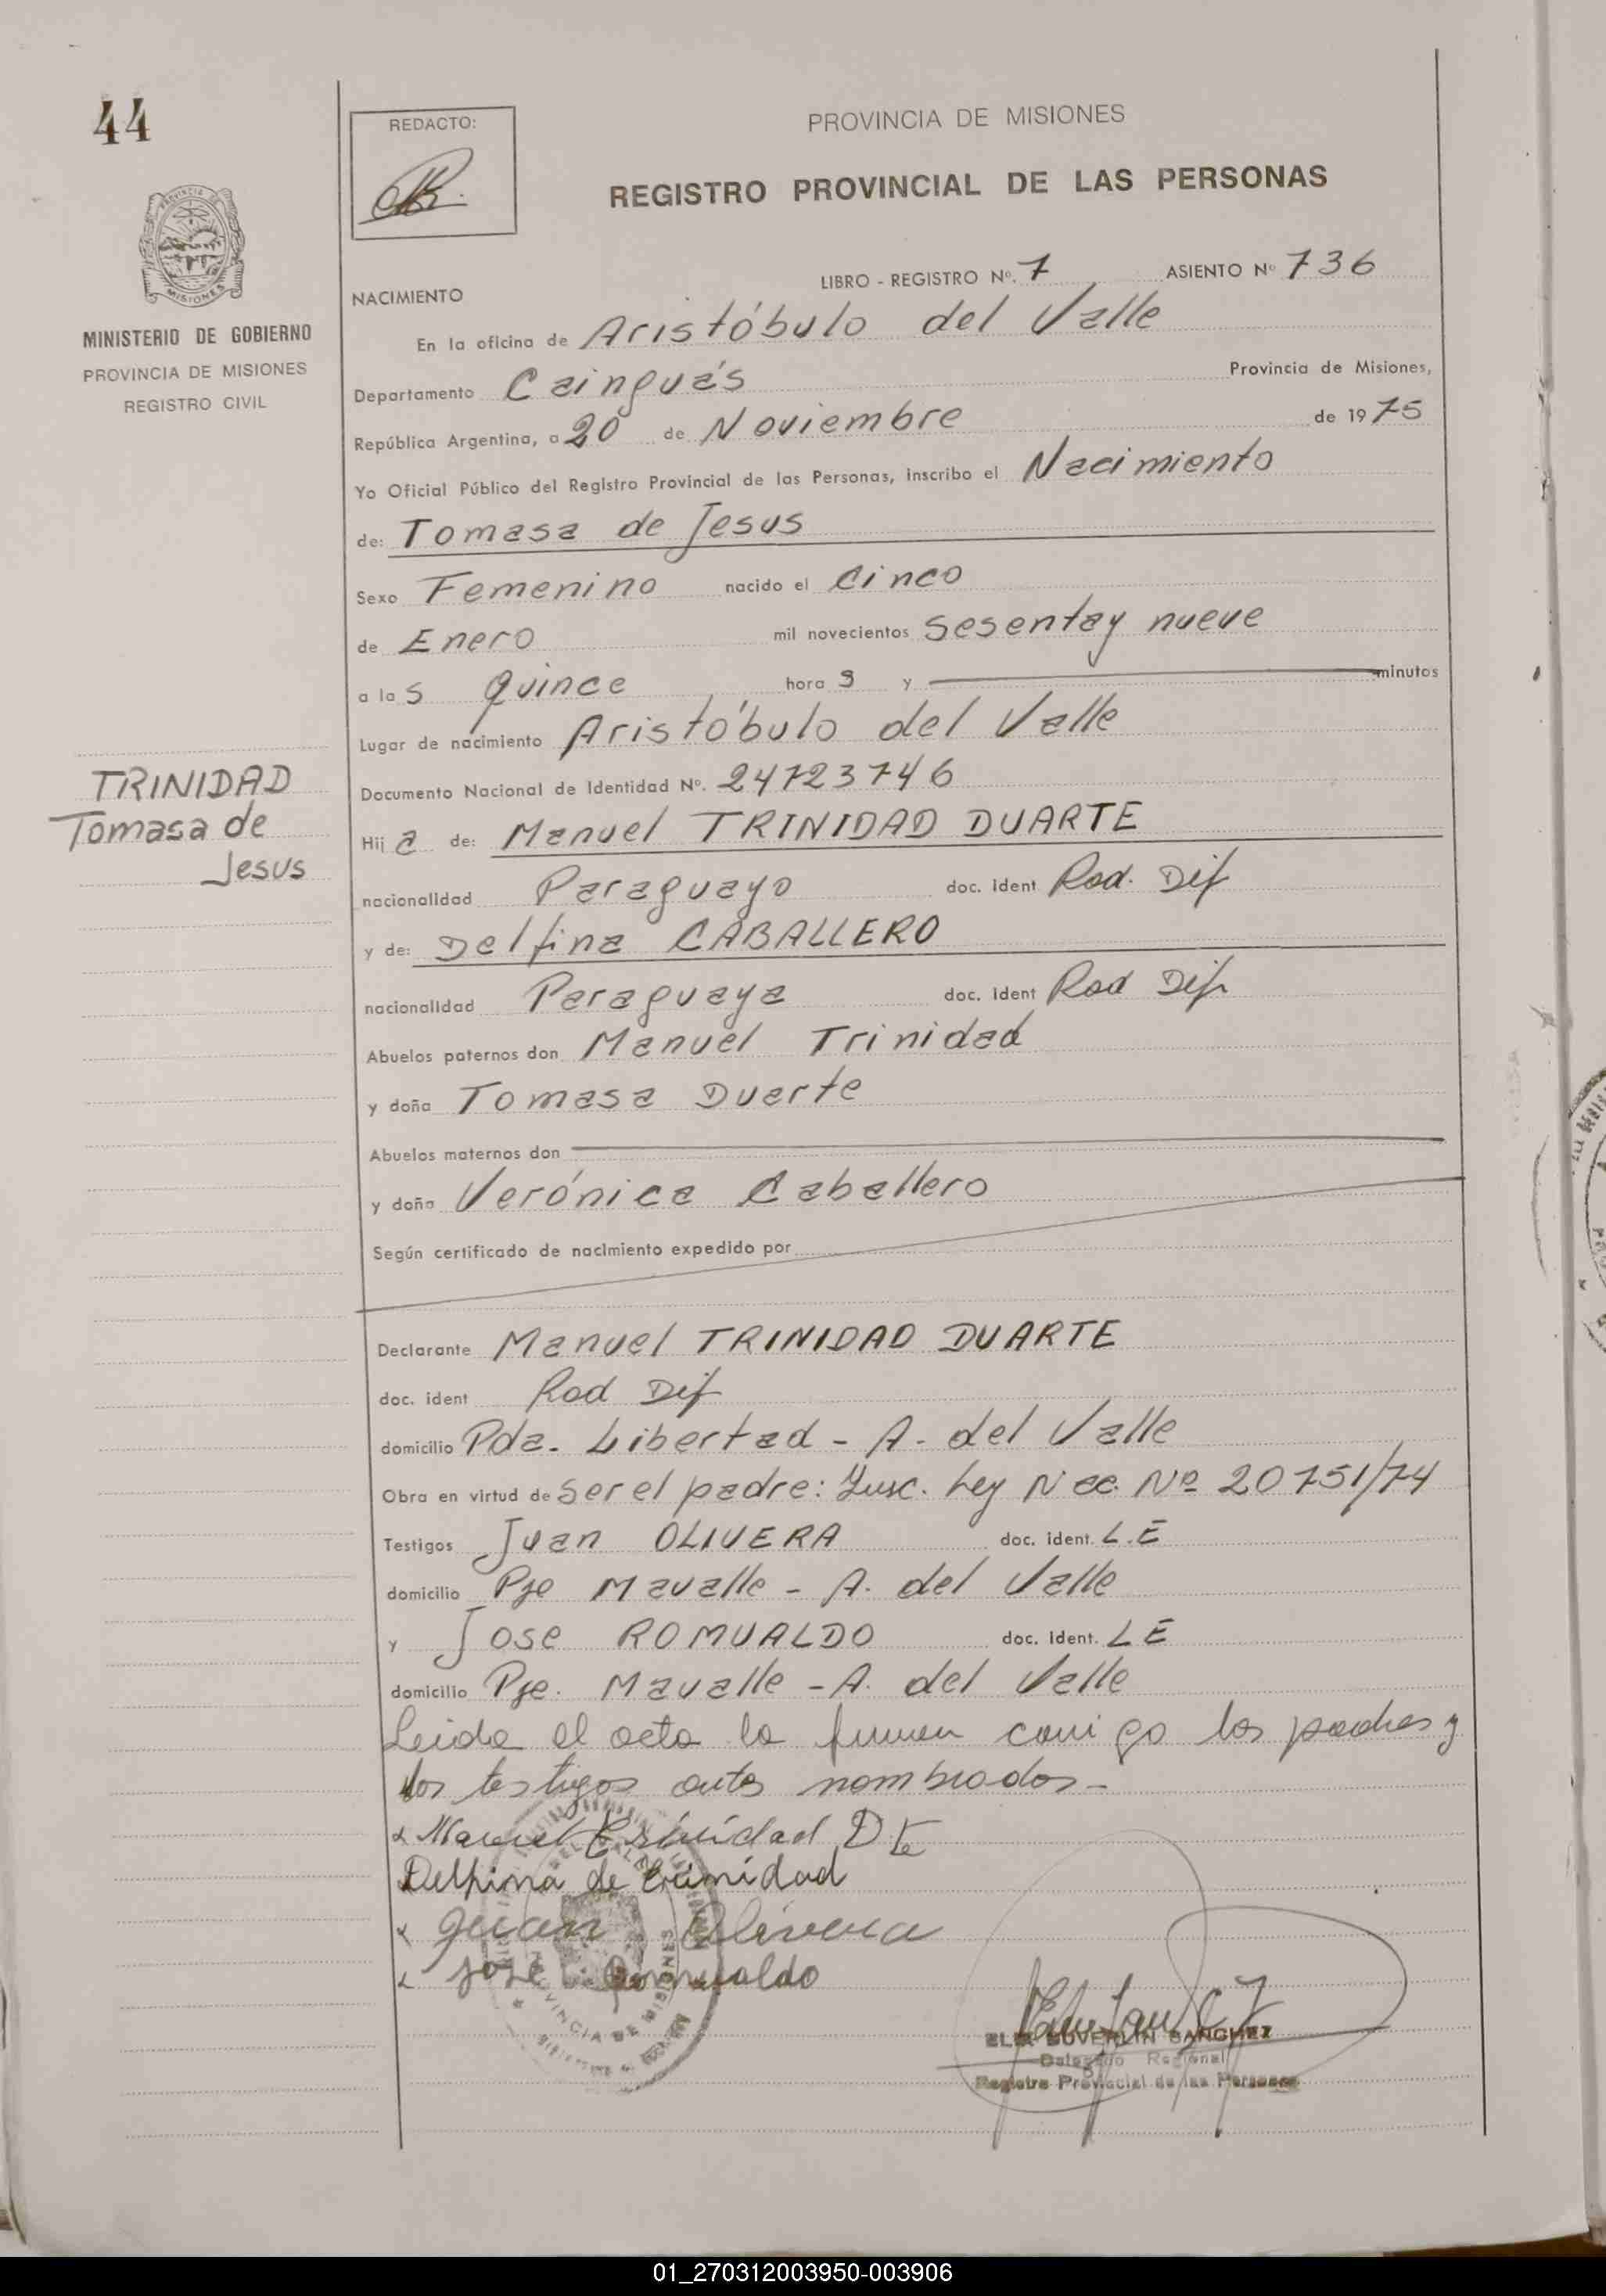 44
REDACTO:
PROVINCIA DE MISIONES
REGISTRO PROVINCIAL DE LAS PERSONAS
MISIONES
MINISTERIO DE GOBIERNO
PROVINCIA DE MISIONES
REGISTRO CIVIL
LIBRO - REGISTRO Nº. 7 ASIENTO Nº 736
NACIMIENTO
En la oficina de Aristóbulo del Valle
Departamento Cainguás Provincia de Misiones,
República Argentina, a 20 de Noviembre de 1975
Yo Oficial Público del Registro Provincial de las Personas, inscribo el Nacimiento
de: Tomasa de Jesus
Sexo Femenino nacido el Cinco
de Enero mil novecientos Sesentay nueve
a las quince hora s y minutos
Lugar de nacimiento Aristóbulo del Valle
TRINIDAD
Tomasa de
Jesus
Documento Nacional de Identidad Nº. 24723746
Hija de: Manuel TRINIDAD DUARTE
nacionalidad Paraguayo doc. ident Rad. Dif
y de: Delfina CABALLERO
nacionalidad Paraguaya doc. ident Rad Dif
Abuelos paternos don Manuel Trinidad
y doña Tomasa Duarte
Abuelos maternos don
y doña Verónica Caballero
Según certificado de nacimiento expedido por
Declarante Manuel TRINIDAD DUARTE
doc. ident Rad Dif
domicilio Pda. Libertad - A. del Valle
Obra en virtud de ser el padre: Insc. Ley Nac. Nº 20751/74
Testigos Juan OLIVERA doc. ident. L.E
domicilio Pje Mavalle - A. del Valle
y Jose ROMUALDO doc. ident. LE
domicilio Pje. Mavalle - A. del Valle
Leida el acta la firman conmigo los padres y
los testigos antes nombrados -
Manuel Trinidad Dte
Delpina de Trinidad
Juan Olivera
José Romualdo
SANCHEZ
Delegado Regional
Registro Provincial de las Personas
01_270312003950-003906